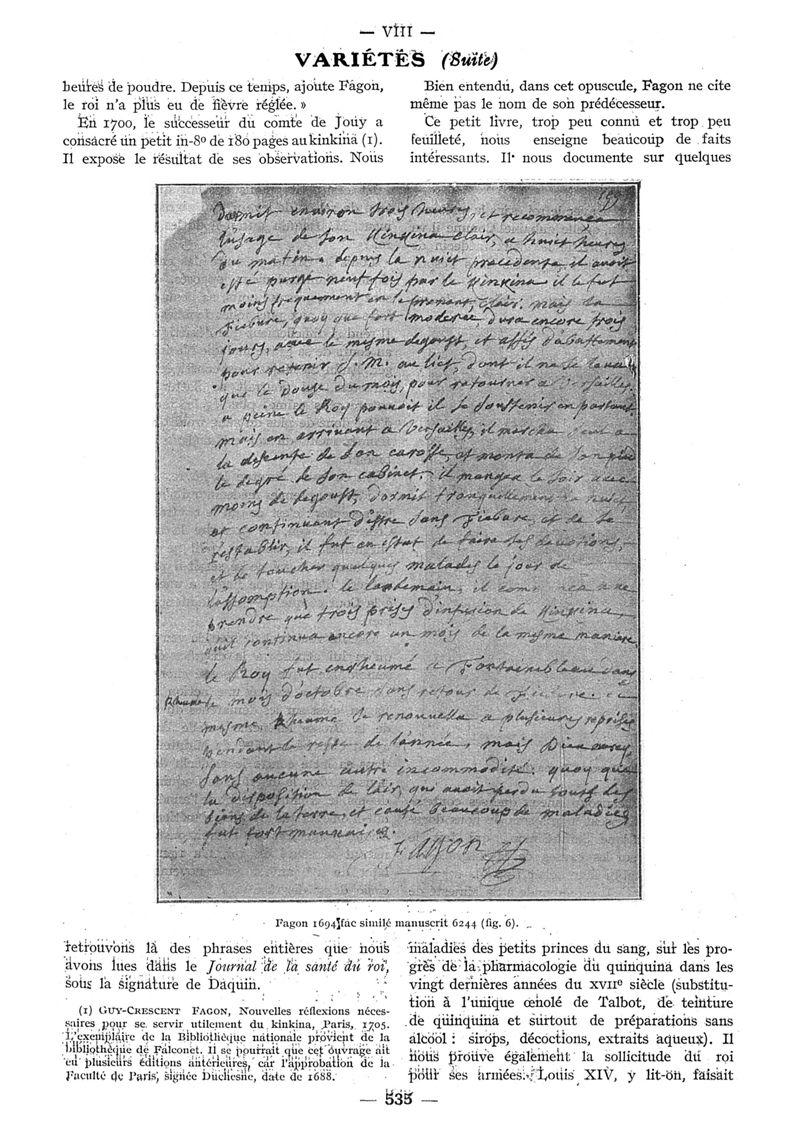 — VIII —
VARIÉTÉS (Suite)
heures de poudre. Depuis ce temps, ajoute Fagon,
le roi n'a plus eu de fièvre réglée. »
En 1700, le successeur du comte de Jouy a
consacré un petit in-8º de 180 pages au kinkina (1).
Il expose le résultat de ses observations. Nous
Bien entendu, dans cet opuscule, Fagon ne cite
même pas le nom de son prédécesseur.
Ce petit livre, trop peu connu et trop peu
feuilleté, nous enseigne beaucoup de faits
intéressants. Il nous documente sur quelques
dormit environ trois heures, et recommença
lusage de son Kinkina clair, a huict heures
du matin. depuis la nuict precedente il avoit
esté purgé neuf fois par le Kinkina il le fut
moins frequemment en le prenant clair. mais la
Fiebure, quoy que fort moderée, dura encore trois
jours, avec le mesme degoust, et assés d'abattement
pour retenir S. M. au lict, dont il ne se leva
que le douze du mois, pour retourner a Versailles
a peine le Roy pouvoit il se soustenir en partant
mais en arrivant a Versailles, il marcha seul a
la descente de son carosse, et monta de son pied
le degré de son cabinet. il mangea le soir avec
moins de degoust, dormit tranquillement la nuict,
et continuant d'estre sans Fiebure, et de se
restablir, il fut en estat de faire ses devotions,
et de toucher quelques malades le jour de
l'assomption. le lendemain, il commença a ne
prendre que trois prises d'infusion de Kinkina
quil continua encore un mois de la mesme maniere
le Roy fut enrheumé a Fontainebleau dans
Rhume le mois d'octobre sans retour de Fiebure. ce
mesme Rhume se renouvella a plusieurs reprises
pendant le reste de l'année, mais
sans aucune autre incommodité. quoy que
la disposition de lair, qui avoit perdu tous les
biens de la terre, et causé beaucoup de maladies
fut fort mauvaise.
Fagon
Fagon 1694, fac similé manuscrit 6244 (fig. 6).
retrouvons là des phrases entières que nous
avons lues dans le Journal de la santé du roi,
sous la signature de Daquin.
(1) GUY-CRESCENT FAGON, Nouvelles réflexions néces-
saires pour se servir utilement du kinkina, Paris, 1705.
L'exemplaire de la Bibliothèque nationale provient de la
bibliothèque de Falconet. Il se pourrait que cet ouvrage ait
eu plusieurs éditions antérieures, car l'approbation de la
Faculté de Paris, signée Duchesne, date de 1688.
maladies des petits princes du sang, sur les pro-
grès de la pharmacologie du quinquina dans les
vingt dernières années du XVIIe siècle (substitu-
tion à l'unique œnolé de Talbot, de teinture
de quinquina et surtout de préparations sans
alcool : sirops, décoctions, extraits aqueux). Il
nous prouve également la sollicitude du roi
pour ses armées. Louis XIV, y lit-on, faisait
— 535 —